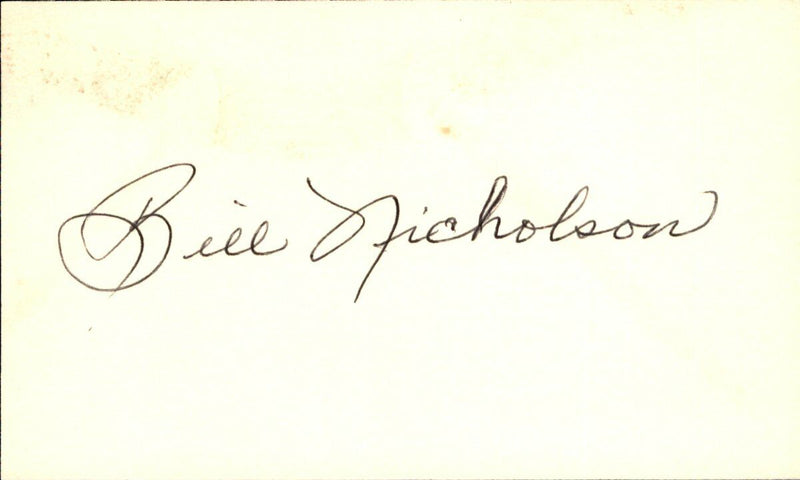 Bill Nicholson